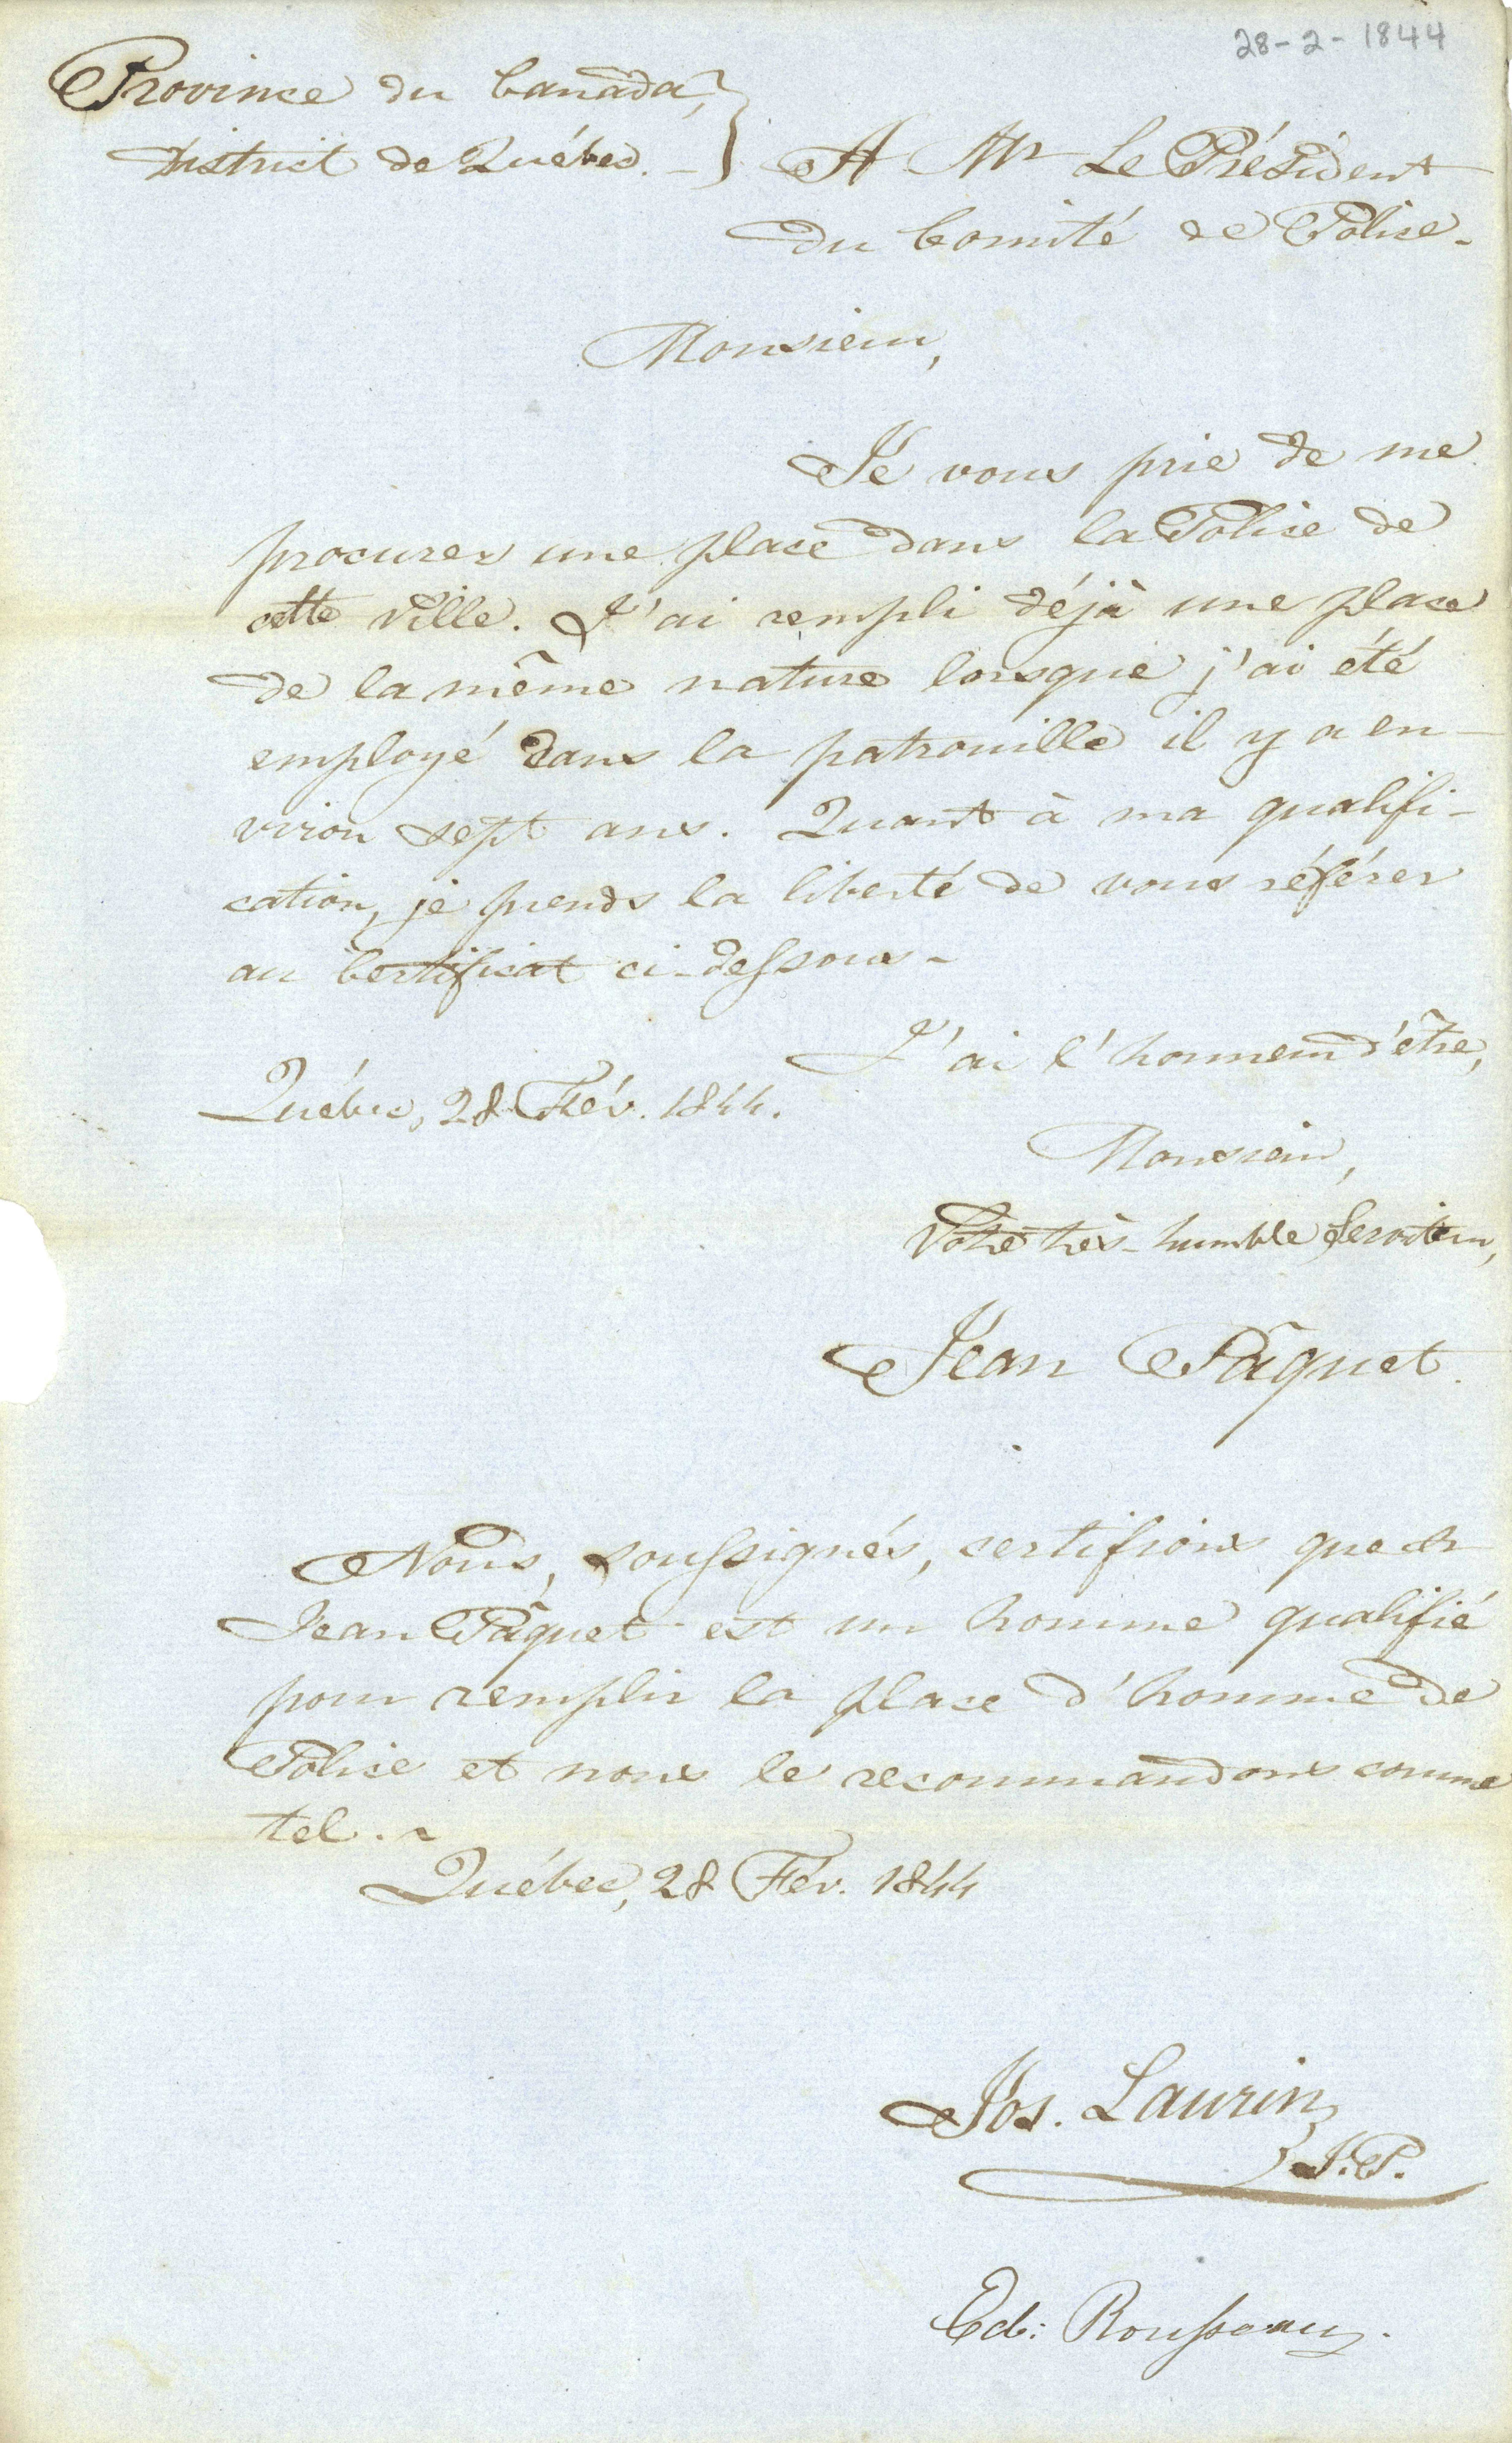 28-2-1844
Province du Canada,
District de Québec. -
A Mr Le Président
du Comité de Police.
Monsieur,
Je vous prie de me
procurer une place dans la Police de
cette ville. J'ai rempli déjà une place
de la même nature lorsque j'ai été
employé dans la patrouille il y a en-
viron sept ans. Quant à ma qualifi-
cation, je prends la liberté de vous référer
au Certificat ci-dessous -
J'ai l'honneur d'être,
Québec, 28 Fév. 1844.
Monsieur,
Votre très-humble Serviteur,
Jean Pâquet.
Nous, soussignés, certifions que
Jean Pâquet est un homme qualifié
pour remplir la place d'homme de
Police et nous le recommandons comme
tel. -
Québec, 28 Fév. 1844
Jos. Laurin
J.P.
Ed: Rousseau.